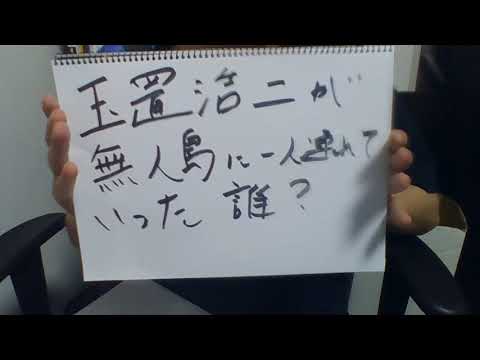 玉置浩二が
無人島に一人連れて
いった 誰?